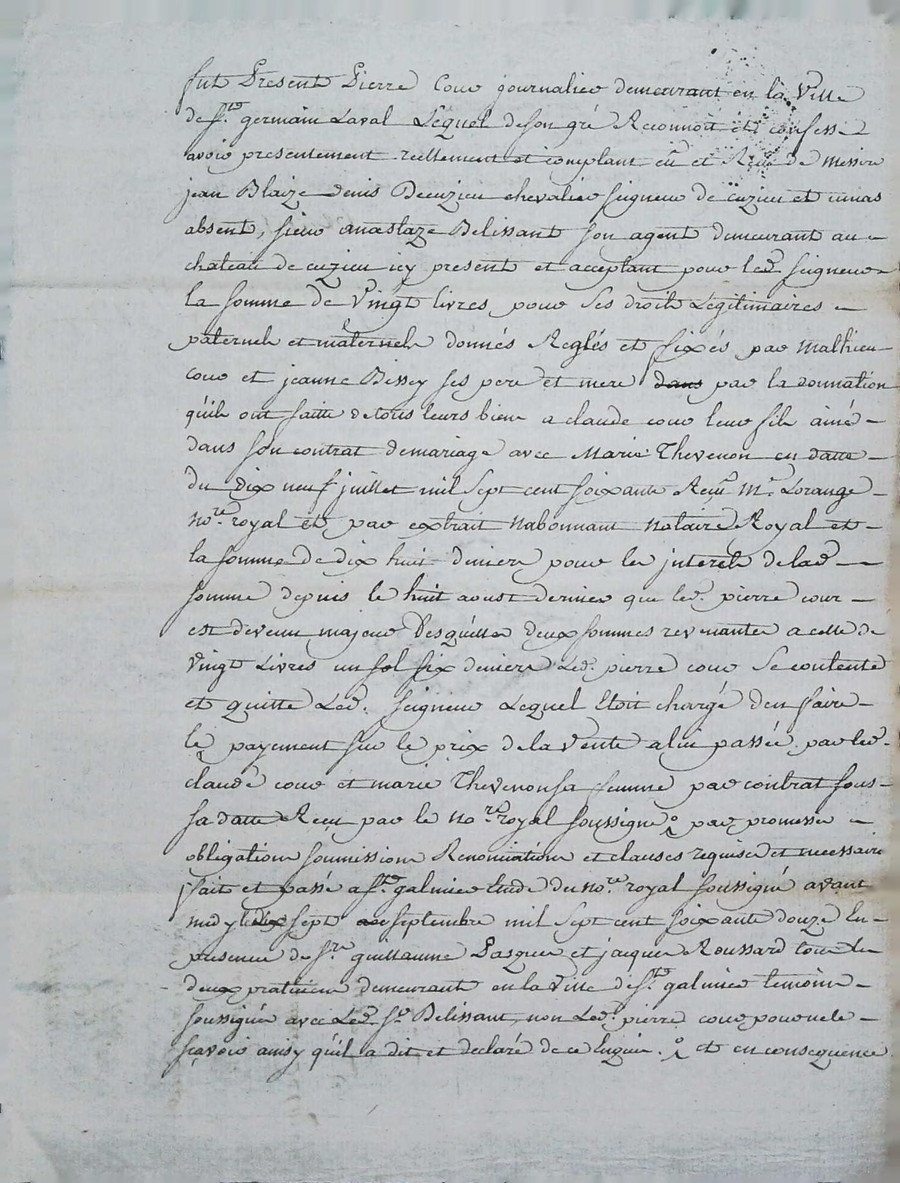 fut Present Pierre Cour journalier demeurant en la Ville
de St. germain Laval Lequel de son gré Reconnoit et confesse
avoir presentement reellement et comptant eü et Reçu de Messire
jean Blaize denis Decuzieu chevalier seigneur de cuzieu et unias
absent, sieur anastaze Belissant son agent demeurant au
chateau de cuzieu icy present et acceptant pour led. seigneur
la somme de Vingt livres pour ses droits Legitimaires
paternels et maternels donnés Reglés et fixés par Mathieu
cour et jeanne Bissey ses pere et mere dans par la donnation
qu'ils ont faitte de tous leurs biens a claude cour leur fils ainé
dans son contrat de mariage avec Marie Thevenon en datte
du dix neuf juillet mil sept cent soixante Reçu Me. Lorange
nore. royal et par extrait nabonnant notaire Royal et
la somme de dix huit deniers pour les jnterets de lad.
somme depuis le huit aoust dernier que led. pierre cour
est devenu majeur Desquelles deux sommes revenantes a celle de
Vingt Livres un sol six deniers Led. pierre cour se contente
et quitte Led. seigneur Lequel Etoit chargé d'en faire
le payement sur le prix de la Vente a lui passée par led.
claude cour et marie Thevenon sa femme par contrat sous
sa datte Reçu par le nore. royal soussigné par promesses
obligations soumissions Renonciations et clauses requises et necessaires
fait et passé a St. galmier Etude du nore. royal soussigné avant
midy le dix sept septembre mil sept cent soixante douze En
presence de sr. guillaume Pasquier et jacques Roussard tous les
deux praticiens demeurant en la Ville de St. galmier temoins
soussignés avec Led. sr. Belissant, non Led. pierre cour pour ne le
sçavoir ainsy qu'il a dit et declaré de ce Enquis. et en consequence